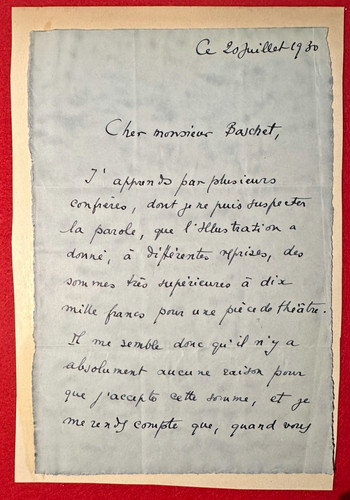 Ce 20 juillet 1930
Cher monsieur Baschet,
J'apprends par plusieurs
confrères, dont je ne puis suspecter
la parole, que l'Illustration a
donné, à différentes reprises, des
sommes très supérieures à dix
mille francs pour une pièce de théâtre.
Il me semble donc qu'il n'y a
absolument aucune raison pour
que j'accepte cette somme, et je
me rends compte que, quand vous